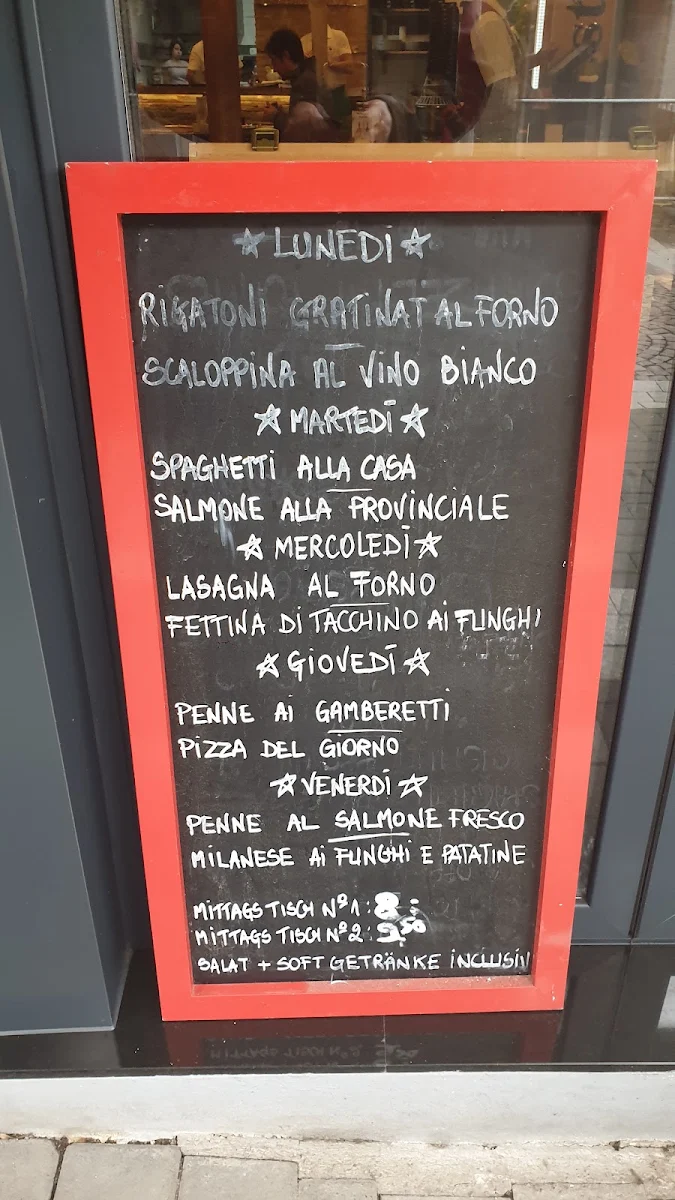 ☆ LUNEDÌ ☆
RIGATONI GRATINAT AL FORNO
SCALOPPINA AL VINO BIANCO
☆ MARTEDÌ ☆
SPAGHETTI ALLA CASA
SALMONE ALLA PROVINCIALE
☆ MERCOLEDÌ ☆
LASAGNA AL FORNO
FETTINA DI TACCHINO Ai FUNGHI
☆ GIOVEDÌ ☆
PENNE Ai GAMBERETTI
PIZZA DEL GIORNO
☆ VENERDÌ ☆
PENNE AL SALMONE FRESCO
MILANESE Ai FUNGHI E PATATINE
MITTAGS TISCH Nº1: 8.-
MITTAGS TISCH Nº2:
SALAT + SOFT GETRÄNKE INCLUSIV